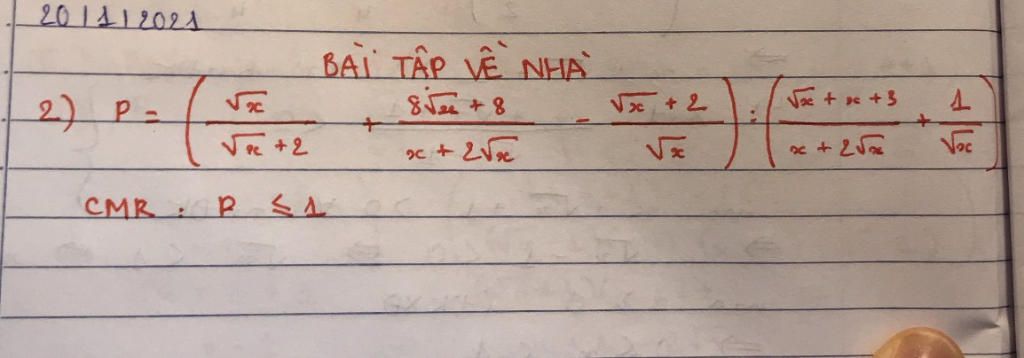 20/1/2021
BÀI TẬP VỀ NHÀ
2) P = (√x / (√x + 2) + (8√x + 8) / (x + 2√x) - (√x + 2) / √x) : ((√x + x + 3) / (x + 2√x) + 1 / √x)
CMR : P ≤ 1